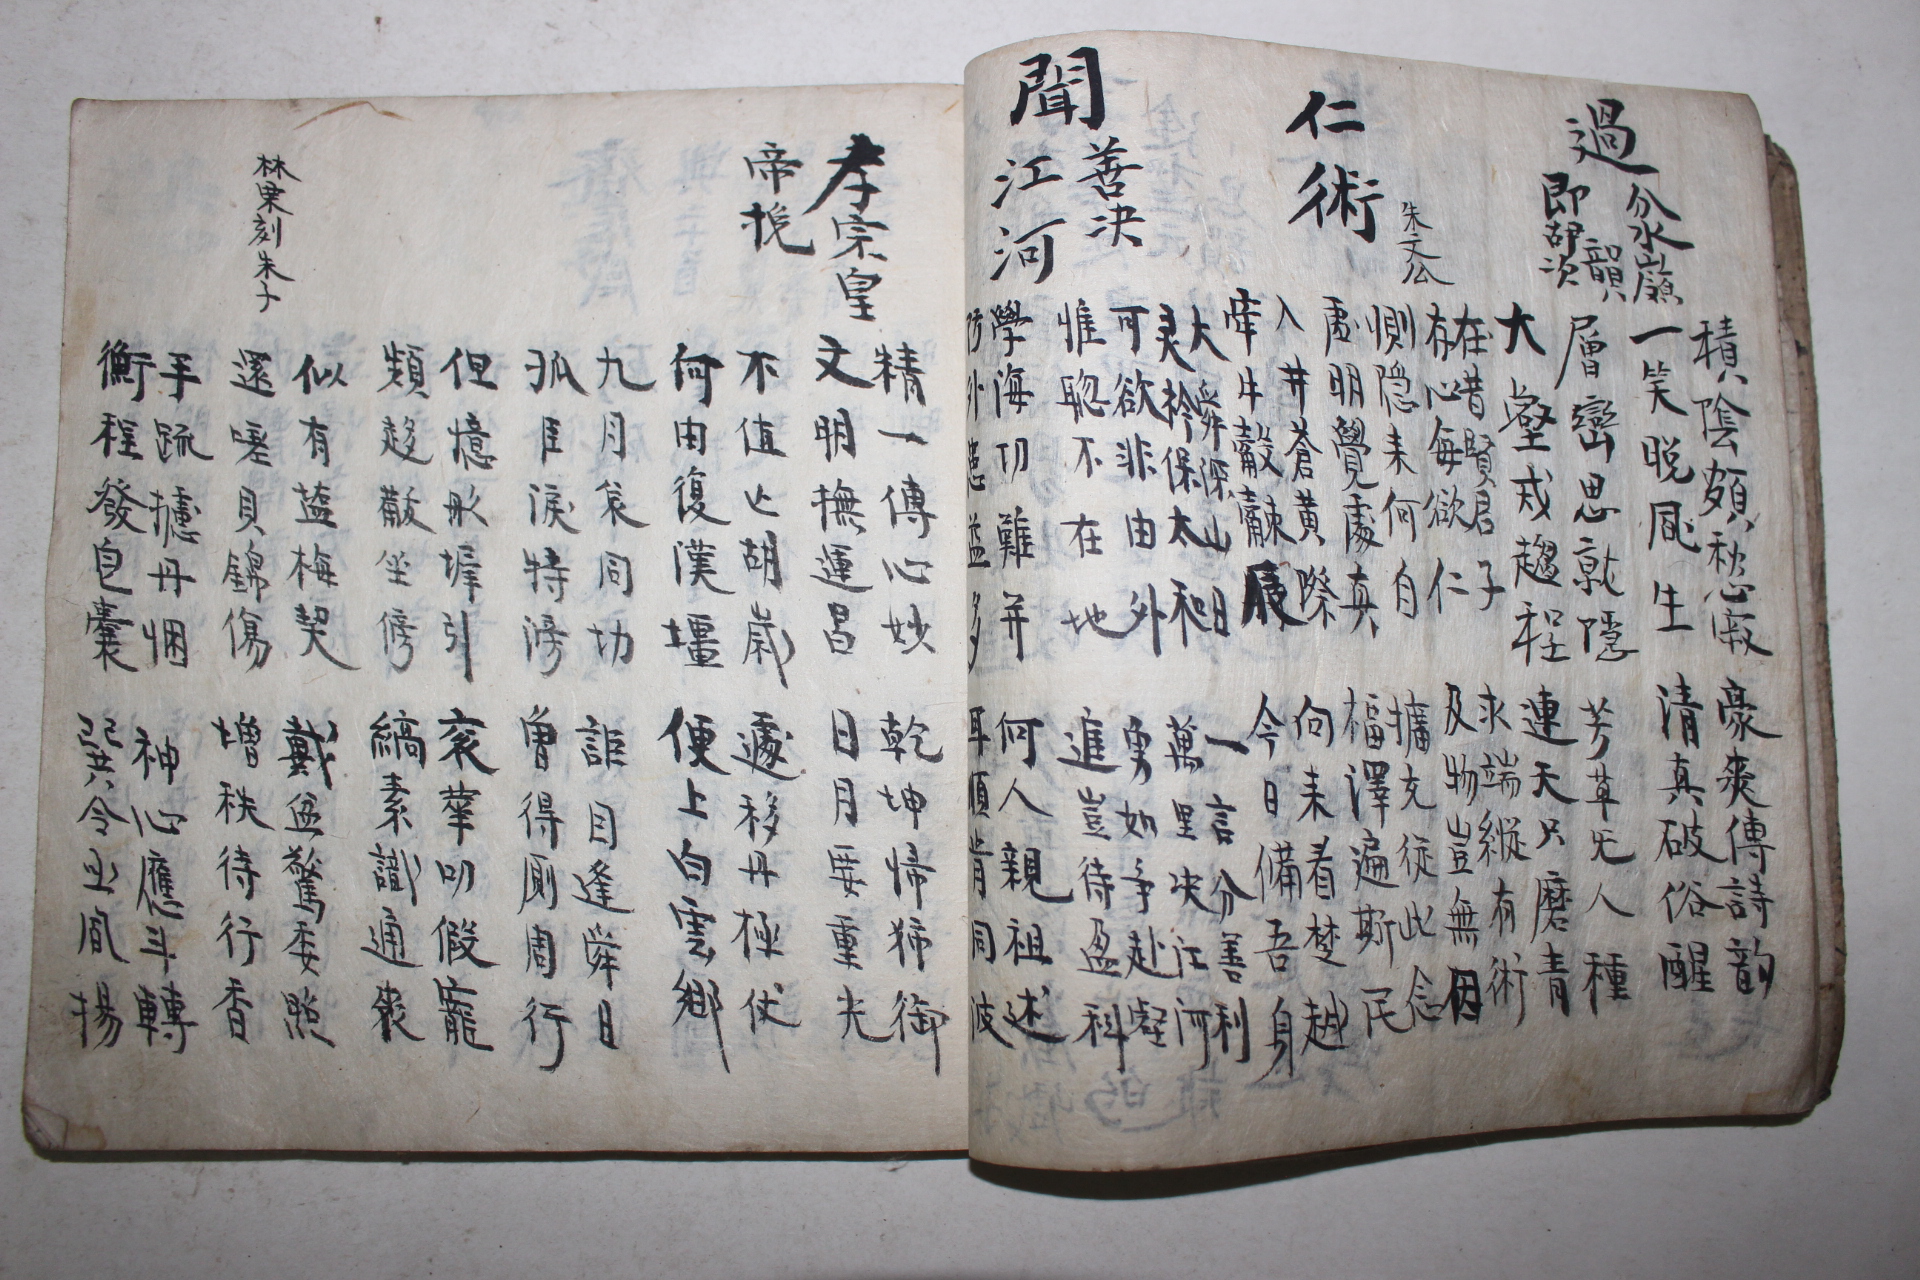 積陰頗愁寂 豪爽傳詩韵
一笑晩風生 清真破俗醒
過分水嶺
即 次韻
層巒思就隱 芳草旡人種
大壑戒趨程 連天只麽青
仁術 朱文公
在昔賢君子 求端縱有術
存心每欲仁 及物豈無因
惻隱未何自 擴充従此念
虛明覺處真 福澤遍斯民
入井蒼黃際 向未看楚越
牽牛觳觫辰 今日備吾身
聞善決江河
大舜深山日 一言分善利
灵衿保太和 萬里決江河
可欲非由外 勇如爭赴壑
惟聰不在地 進豈待盈科
學海切難并 何人親祖述
防外患益多 耳順肯同波
孝宗皇帝挽
精一傳心妙 乾坤帰狩御
文明撫運昌 日月要重光
不值亡胡歲 遽移丹極仗
何由復漢壃 便上白雲鄉
九月衰同切 詎目逢舜日
孤臣淚特滂 曾得厠周行
但憶彤墀引 袞華叨假寵
頻趍黻坐傍 縞素識通喪
似有塩梅契 戴盆驚委照
還嗟貝錦傷 增秩待行香
林栗刻朱子
手疏攄丹悃 神心應斗轉
衡程發皀囊 巽令亟風揚